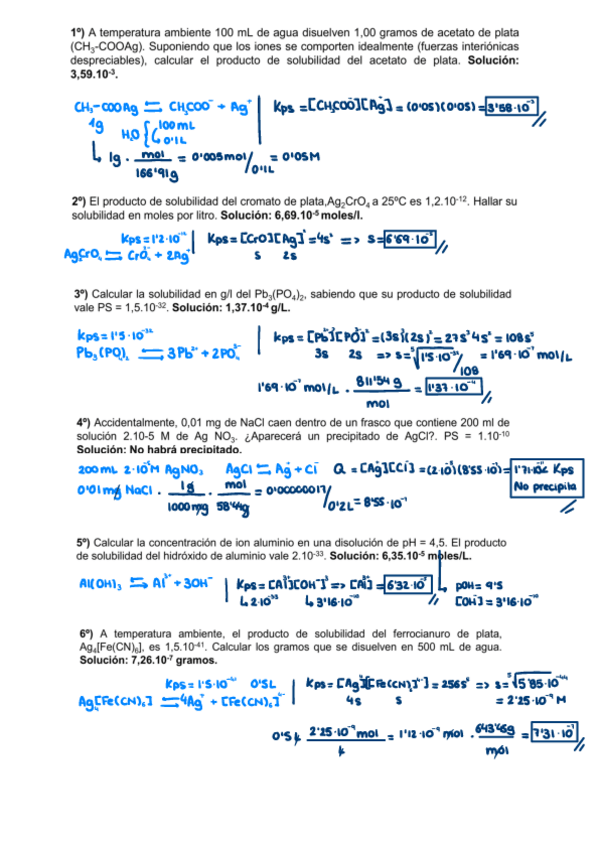 1º) A temperatura ambiente 100 mL de agua disuelven 1,00 gramos de acetato de plata
(CH3-COOAg). Suponiendo que los iones se comporten idealmente (fuerzas interiónicas
despreciables), calcular el producto de solubilidad del acetato de plata. Solución:
3,59.10-3.
CH3-COOAg ⇌ CH3COO- + Ag+ | Kps = [CH3COO-][Ag+] = (0'05)(0'05) = 3'58·10-3
1g H2O { 100mL
0'1L
1g · mol / 166'91g = 0'005mol / 0'1L = 0'05M
2º) El producto de solubilidad del cromato de plata,Ag2CrO4 a 25ºC es 1,2.10-12. Hallar su
solubilidad en moles por litro. Solución: 6,69.10-5 moles/l.
Kps = 1'2·10-12 | Kps = [CrO4][Ag]2 = 4s3 => s = 6'69·10-5
Ag2CrO4 ⇌ CrO4 + 2Ag+ s 2s
3º) Calcular la solubilidad en g/l del Pb3(PO4)2, sabiendo que su producto de solubilidad
vale PS = 1,5.10-32. Solución: 1,37.10-4 g/L.
Kps = 1'5·10-32 Kps = [Pb]3[PO4]2 = (3s)3(2s)2 = 27s3 4s2 = 108s5
Pb3(PO4)2 ⇌ 3Pb2+ + 2PO43- 3s 2s => s = 5√1'5·10-32 / 108 = 1'69·10-7 mol/L
1'69·10-7 mol/L · 811'54 g / mol = 1'37·10-4
4º) Accidentalmente, 0,01 mg de NaCl caen dentro de un frasco que contiene 200 ml de
solución 2.10-5 M de Ag NO3. ¿Aparecerá un precipitado de AgCl?. PS = 1.10-10
Solución: No habrá precipitado.
200mL 2·10-5M AgNO3 AgCl ⇌ Ag+ + Cl- Q = [Ag][Cl] = (2·10-5)(8'55·10-7) = 1'71·10-11 < Kps
0'01mg NaCl · 1g / 1000mg · mol / 58'44g = 0'00000017 / 0'2L = 8'55·10-7 No precipita
5º) Calcular la concentración de ion aluminio en una disolución de pH = 4,5. El producto
de solubilidad del hidróxido de aluminio vale 2.10-33. Solución: 6,35.10-5 moles/L.
Al(OH)3 ⇌ Al3+ + 3OH- | Kps = [Al3+][OH-]3 => [Al3+] = 6'32·10-5 ↳ pOH = 9'5
↳ 2·10-33 ↳ 3'16·10-10 [OH-] = 3'16·10-10
6º) A temperatura ambiente, el producto de solubilidad del ferrocianuro de plata,
Ag4[Fe(CN)6], es 1,5.10-41. Calcular los gramos que se disuelven en 500 mL de agua.
Solución: 7,26.10-7 gramos.
Kps = 1'5·10-41 0'5L | Kps = [Ag]4[Fe(CN)6] = 256s5 => s = 5√5'85·10-44
Ag4[Fe(CN)6] ⇌ 4Ag+ + [Fe(CN)6]4- 4s s = 2'25·10-9 M
0'5L · 2'25·10-9 mol / L = 1'12·10-9 mol · 643'45g / mol = 7'31·10-7